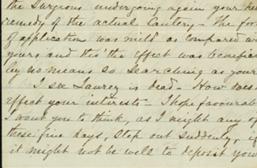 the Surgeons undergoing again your
remedy of the actual Cautery - The
of application was mild as compared
yours and tho' the effect was
by no means so searching as your
I see Laurey is dead - How does
effect your interests - I hope
I want you to think, as I might any of
these fine days, step out suddenly, if
it might not be well to deposit your